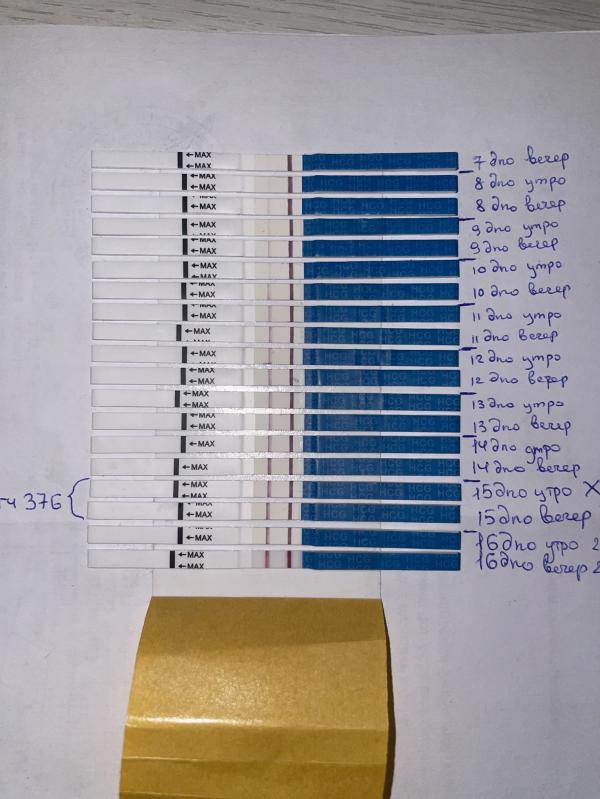 ←MAX
←MAX
7 дпо вечер
←MAX
←MAX
8 дпо утро
←MAX
8 дпо вечер
←MAX
9 дпо утро
←MAX
9 дпо вечер
←MAX
10 дпо утро
←MAX
10 дпо вечер
←MAX
11 дпо утро
←MAX
11 дпо вечер
←MAX
12 дпо утро
←MAX
←MAX
12 дпо вечер
←MAX
13 дпо утро
←MAX
13 дпо вечер
←MAX
14 дпо утро
←MAX
14 дпо вечер
376
←MAX
←MAX
15 дпо утро X
←MAX
15 дпо вечер
←MAX
16 дпо утро 2
←MAX
←MAX
16 дпо вечер 2